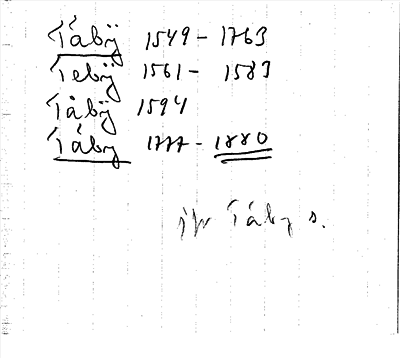 Täbÿ 1549 - 1763
Tebÿ 1561 - 1583
Tåbÿ 1594
Täby 1777 - 1880
jfr Täby s.